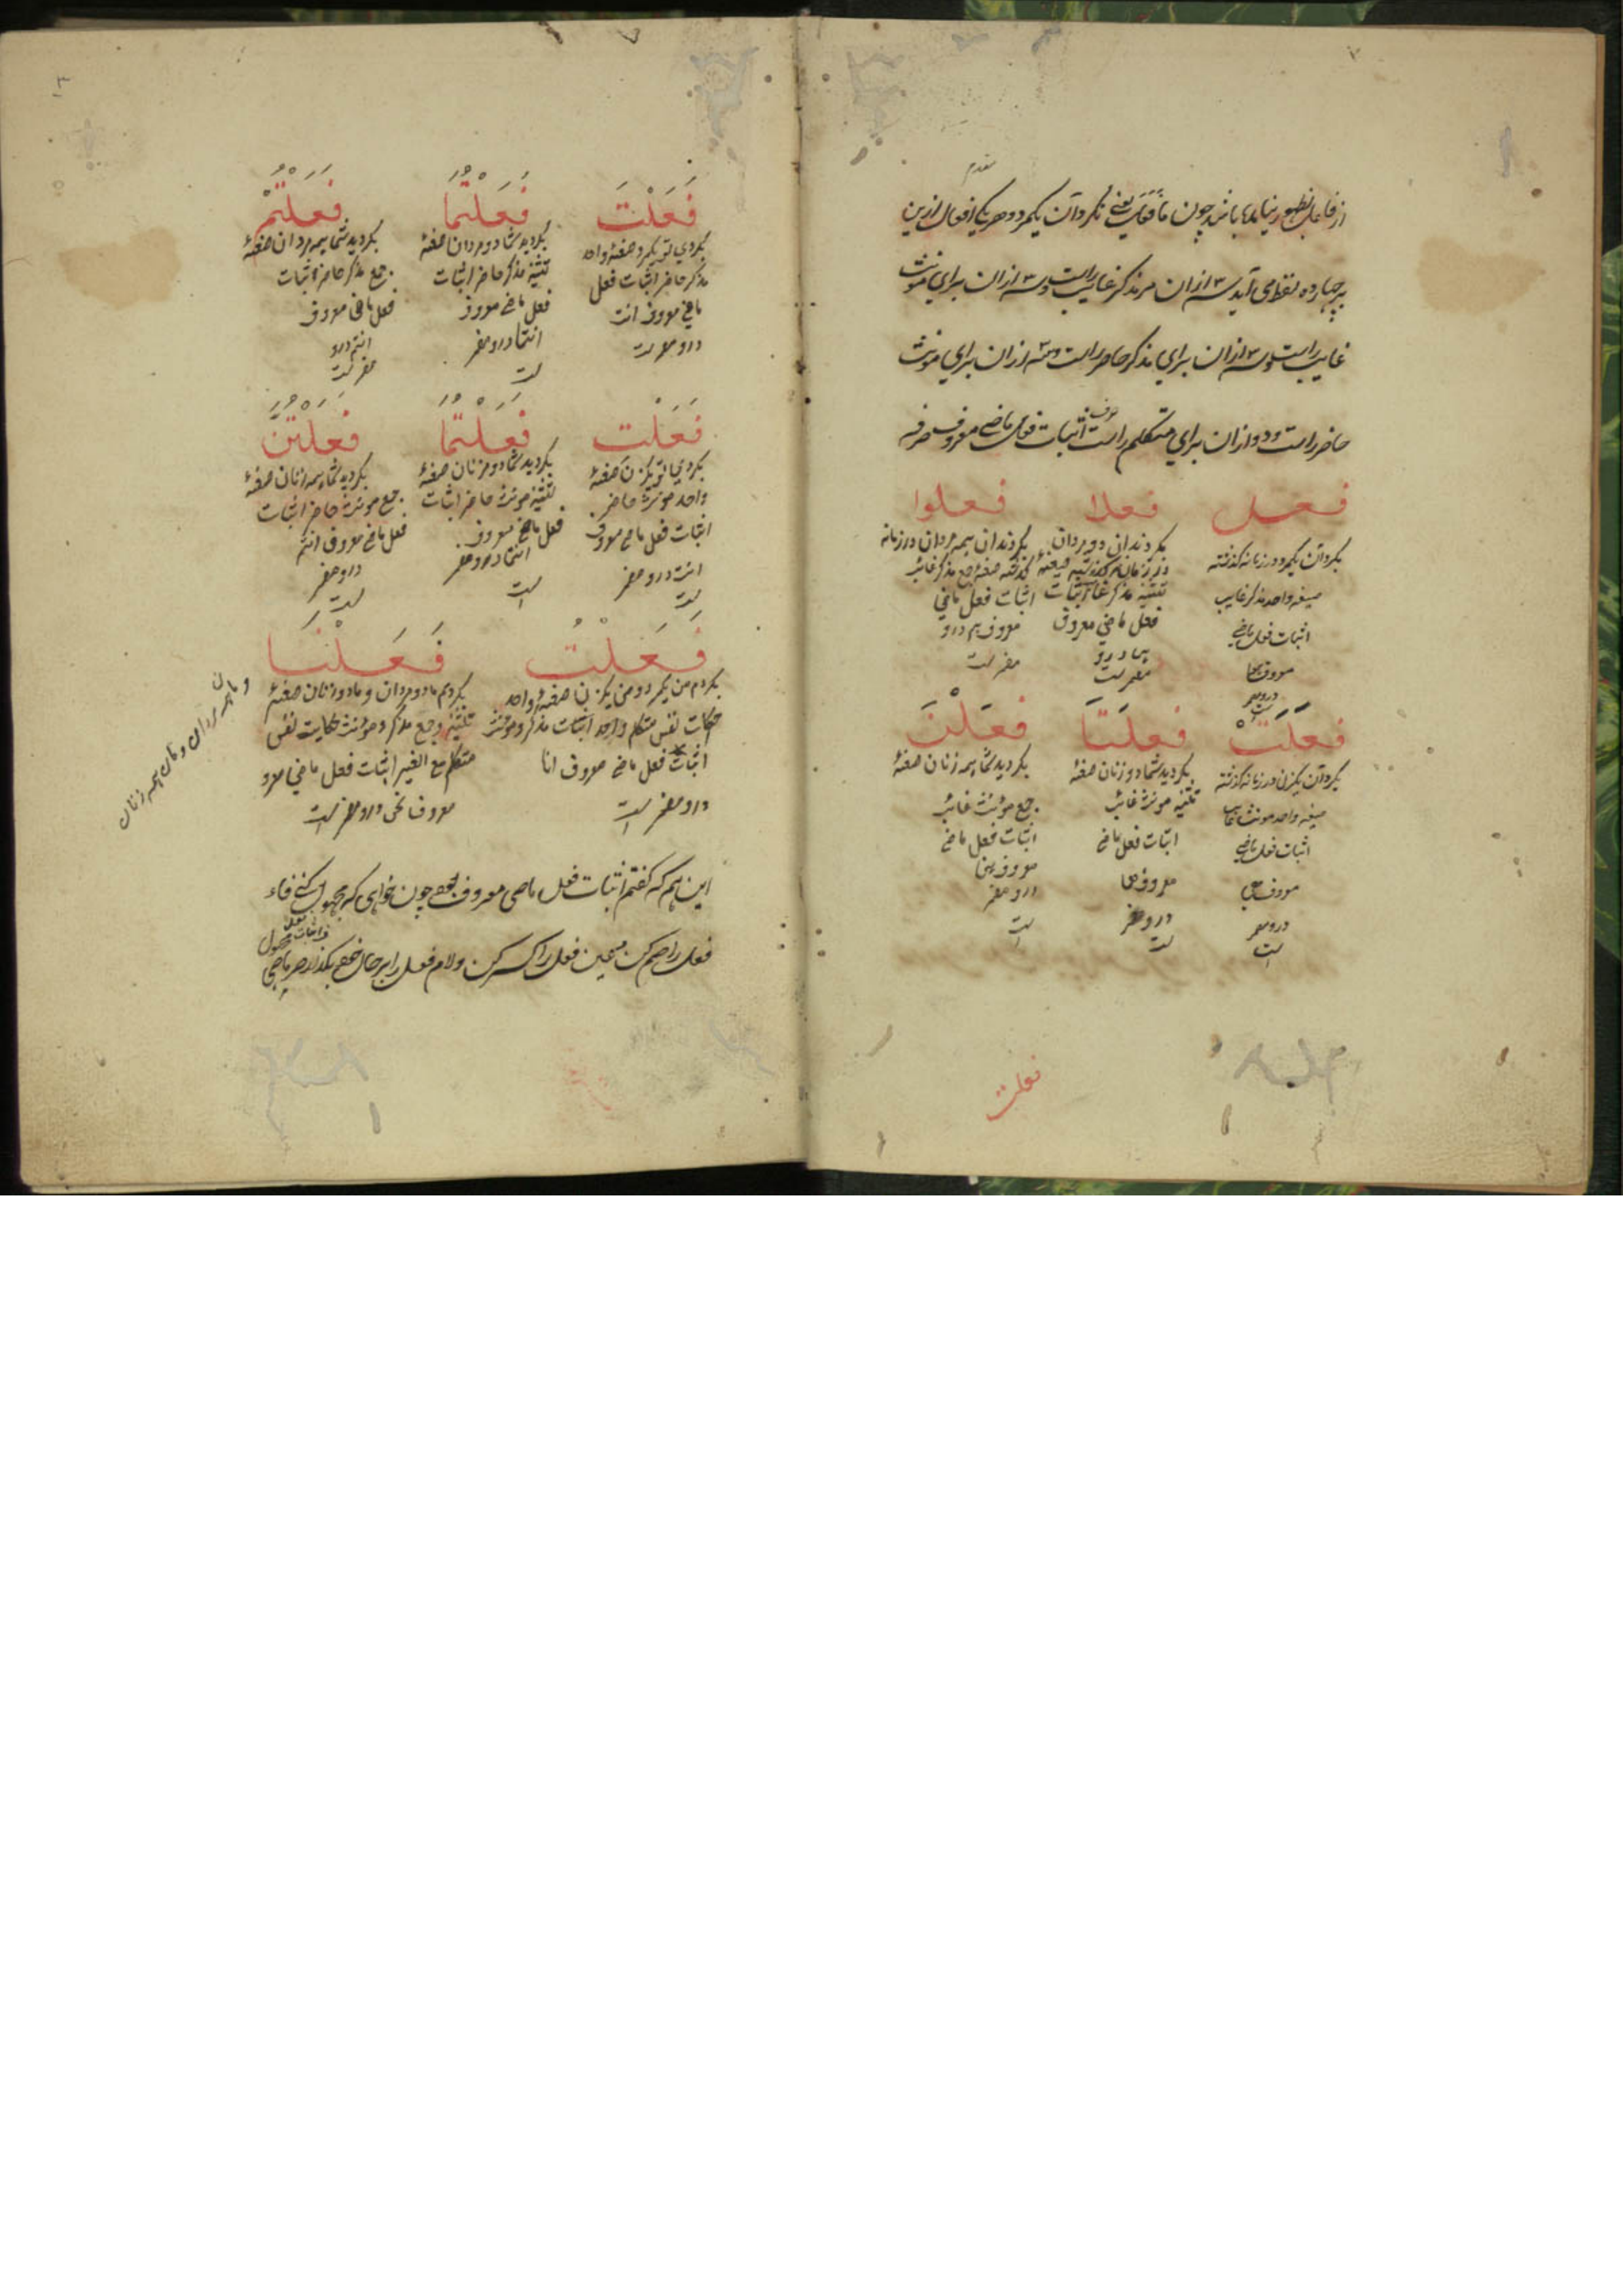 از فاعل بظهور نیامده باشد چون مَا فَعَلَ یعنی نکرد آن یکمرد و هر یکی افعال ازین
بر چهارده لفظ می آید سه ازان مر مذکر غایب راست و سه ازان برای مونث
غایب راست و سه ازان برای مذکر حاضر راست و سه ازان برای مونث
حاضر راست و دو ازان برای متکلم راست اثبات فعل ماضی معروف صرفه
فعل فعلا فعلوا
بکرد آن یکمرد در زمانه گذشته
صیغه واحد مذکر غایب
اثبات فعل ماضی
معروف
بکردند آن دو مردان
تثنیه مذکر غائب اثبات
فعل ماضی معروف
بکردند آن همه مردان در زمانه
گذشته صیغهٔ جمع مذکر غائب
اثبات فعل ماضی
معروف هم درو
مضمر است
فَعَلَتْ فعلَتَا فعَلْنَ
بکرد آن یکزن در زمانه گذشته
صیغه واحد مونث غایب
اثبات فعل ماضی
معروف هی
درو مضمر
است
بکردید شما دو زنان صیغهٔ
تثنیه مونث غائب
اثبات فعل ماضی
معروف هما
درو مضمر
است
بکردید شما همه زنان صیغهٔ
جمع مؤنث غائب
اثبات فعل ماضی
معروف هن
درو مضمر
است
فعلت
فَعَلْتَ فَعَلْتُمَا فَعَلْتُمْ
بکردی تو یکمرد صیغهٔ واحد
مذکر حاضر اثبات فعل
ماضی معروف انت
درو مضمر است
بکردید شما دو مردان صیغهٔ
تثنیه مذکر حاضر اثبات
فعل ماضی معروف
انتما درو مضمر
است
بکردید شما همه مردان صیغهٔ
جمع مذکر حاضر اثبات
فعل ماضی معروف
انتم درو
مضمر است
فَعَلْتِ فَعَلْتُمَا فَعَلْتُنَّ
بکردی تو یکزن صیغهٔ
واحد مونث حاضر
اثبات فعل ماضی معروف
انت درو مضمر
است
بکردید شما دو زنان صیغهٔ
تثنیه مونث حاضر اثبات
فعل ماضی معروف
انتما درو مضمر
است
بکردید شما همه زنان صیغهٔ
جمع مونث حاضر اثبات
فعل ماضی معروف انتن
درو مضمر
است
فَعَلْتُ فَعَلْنَا
بکردم من یکمرد و من یکزن صیغهٔ واحد
حکایت نفس متکلم واحد اثبات مذکر و مؤنث
اثبات فعل ماضی معروف انا
درو مضمر است
بکردیم ما دو مردان و ما دو زنان صیغهٔ
تثنیه و جمع مذکر و مؤنث حکایت نفس
متکلم مع الغیر اثبات فعل ماضی معرو
معروف نحن درو مضمر است
و مایان همه مردان و مایان همه زنان
این هم که گفتم اثبات فعل ماضی معروف بود چون خواهی که مجهول کنی فاء
فعل را ضم کن و عین فعل را کسر کن و لام فعل را بر حال خود بگذار